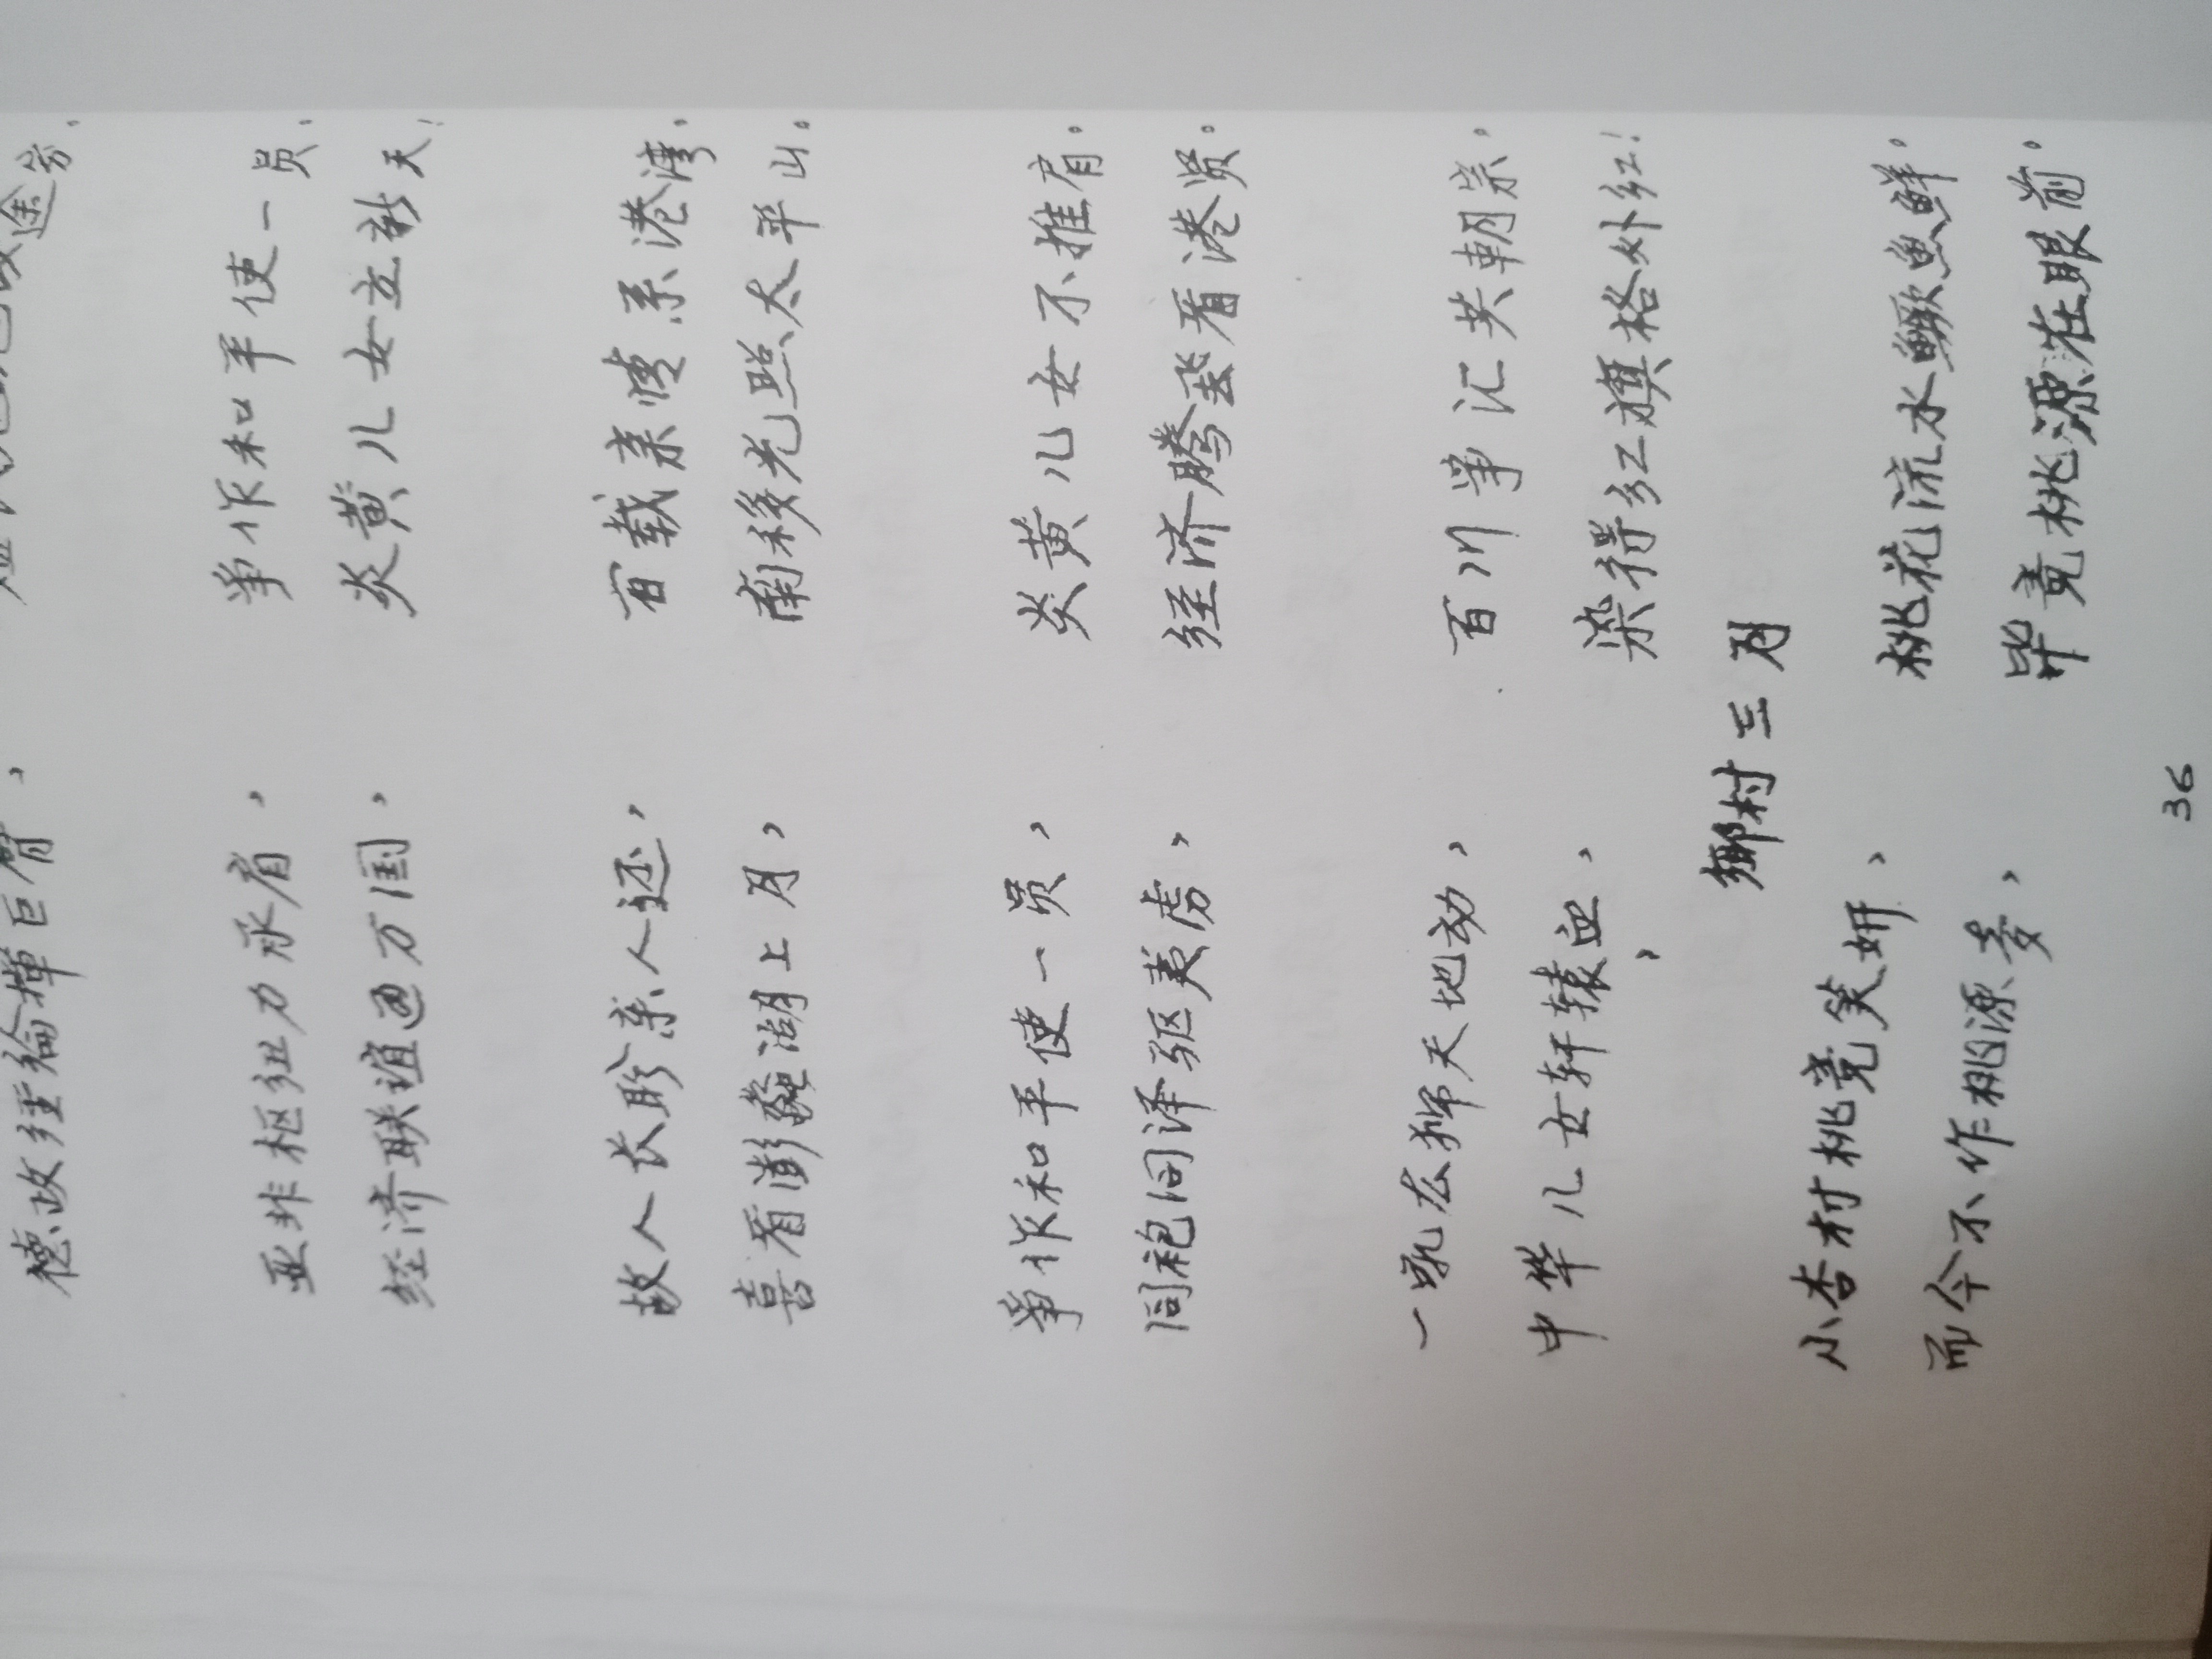 德政经纶挥巨臂，
亚非枢纽力承肩，　争作和平使一员。
经济联谊通万国，　炎黄儿女立新天！
故人长盼亲人还，　百载亲情系港湾。
喜看澎蠡湖上月，　南移光照太平山。
争作和平使一员，　炎黄儿女不推肩。
同袍同泽驱夷虏，　经济腾飞看港员。
一吼宏狮天地动，　百川争汇共朝宗。
中华儿女轩辕血，　染得红旗格外红！
鄉村三月
小杏村桃竞笑妍，　桃花流水鳜鱼鲜。
而今不作桃源梦，　毕竟桃源在眼前。
36